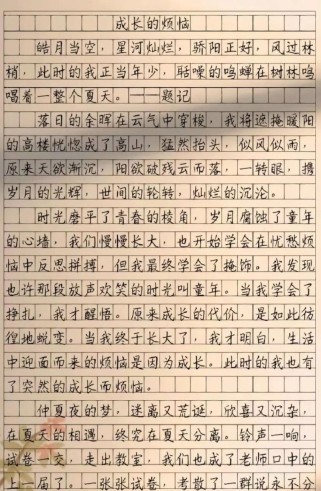 成长的烦恼
皓月当空，星河灿烂，骄阳正好，风过林
梢，此时的我正当年少，聒噪的鸣蝉在树林鸣
唱着一整个夏天。——题记
落日的余晖在云气中穿梭，我将遮掩暖阳
的高楼恍惚成了高山，猛然抬头，似风似雨，
原来天欲渐沉，阳欲破残云而落，一转眼，携
岁月的光辉，世间的轮转，灿烂的沉沦。
时光磨平了青春的棱角，岁月腐蚀了童年
的心墙，我们慢慢长大，也开始学会在忧愁烦
恼中反思拼搏，但我最终学会了掩饰。我发现
也许那段放声欢笑的时光叫童年。当我学会了
挣扎，我才醒悟。原来成长的代价，是如此彷
徨地蜕变。当我终于长大了，我才明白，生活
中迎面而来的烦恼是因为成长。此时的我也有
了突然的成长而烦恼。
仲夏夜的梦，迷离又荒诞，欣喜又沉杂，
在夏天的相遇，终究在夏天分离。铃声一响，
试卷一交，走出教室，我们也成了老师口中的
上一届了。一张张试卷，考散了一群说永不分